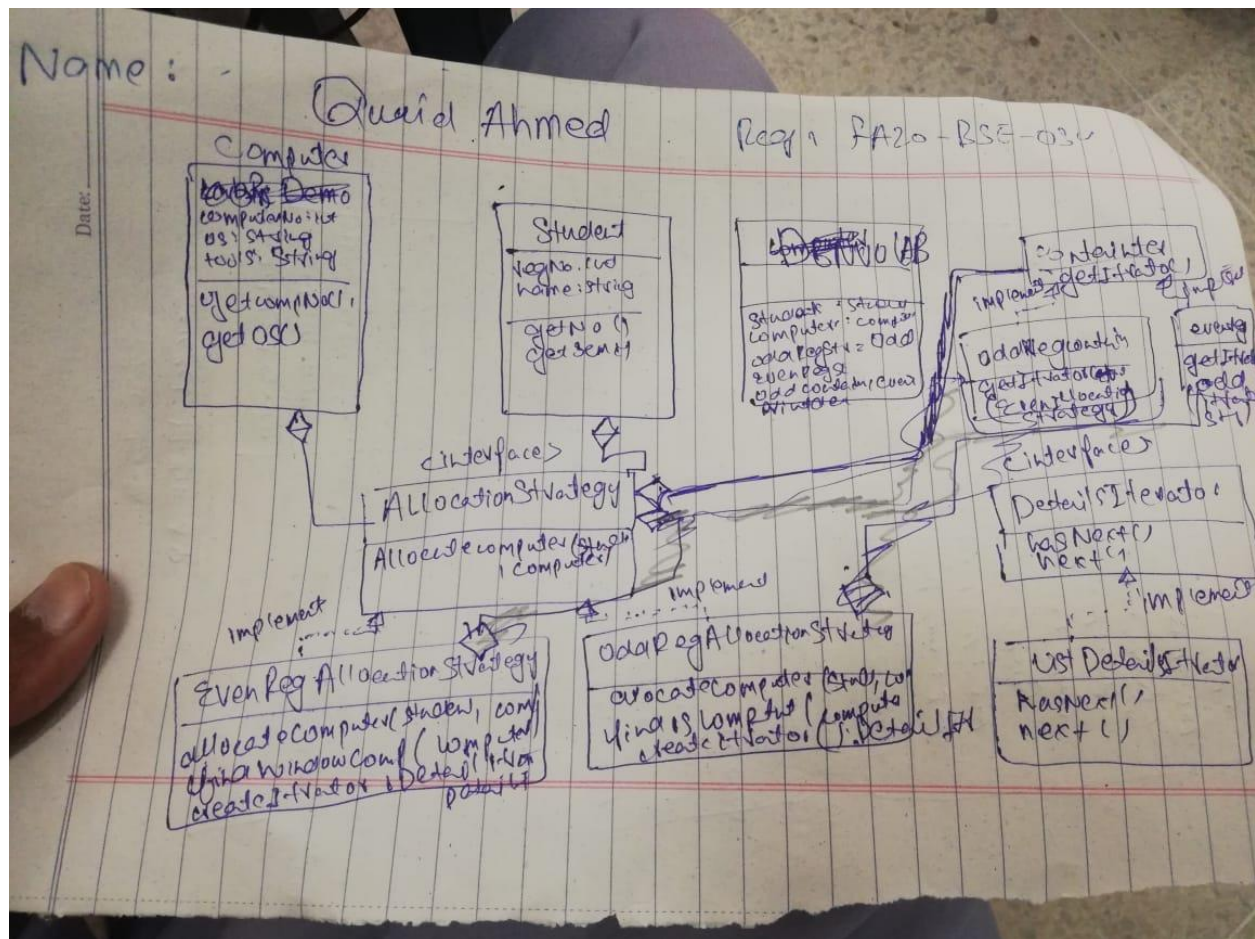 Name :
Quaid Ahmed
Reg : FA20-BSE-03
Date:
Computer
Demo
computerNo: int
os: String
tools: String
getCompNo(),
getOS()
Student
regNo: int
name: string
getNo()
getSem()
DEMO LAB
Student :
computer :
oddRegStr = Odd
evenRegSt
odd contain, even
container
getItrator()
implement
oddRegContain
getItrator
(Even Allocation
Strategy)
getItra
odd
<interface>
AllocationStrategy
Allocatecomputer(
, computer)
<interface>
DetailsIterator
hasNext()
next()
implement
implement
implement
EvenReg AllocationStrategy
allocatecomputer(student, comp
findWindowComp( computer)
createItrator :
oddRegAllocationStrateg
allocatecomputer(
createItrator() : DetailIt
ListDetailsItrator
hasNext()
next()